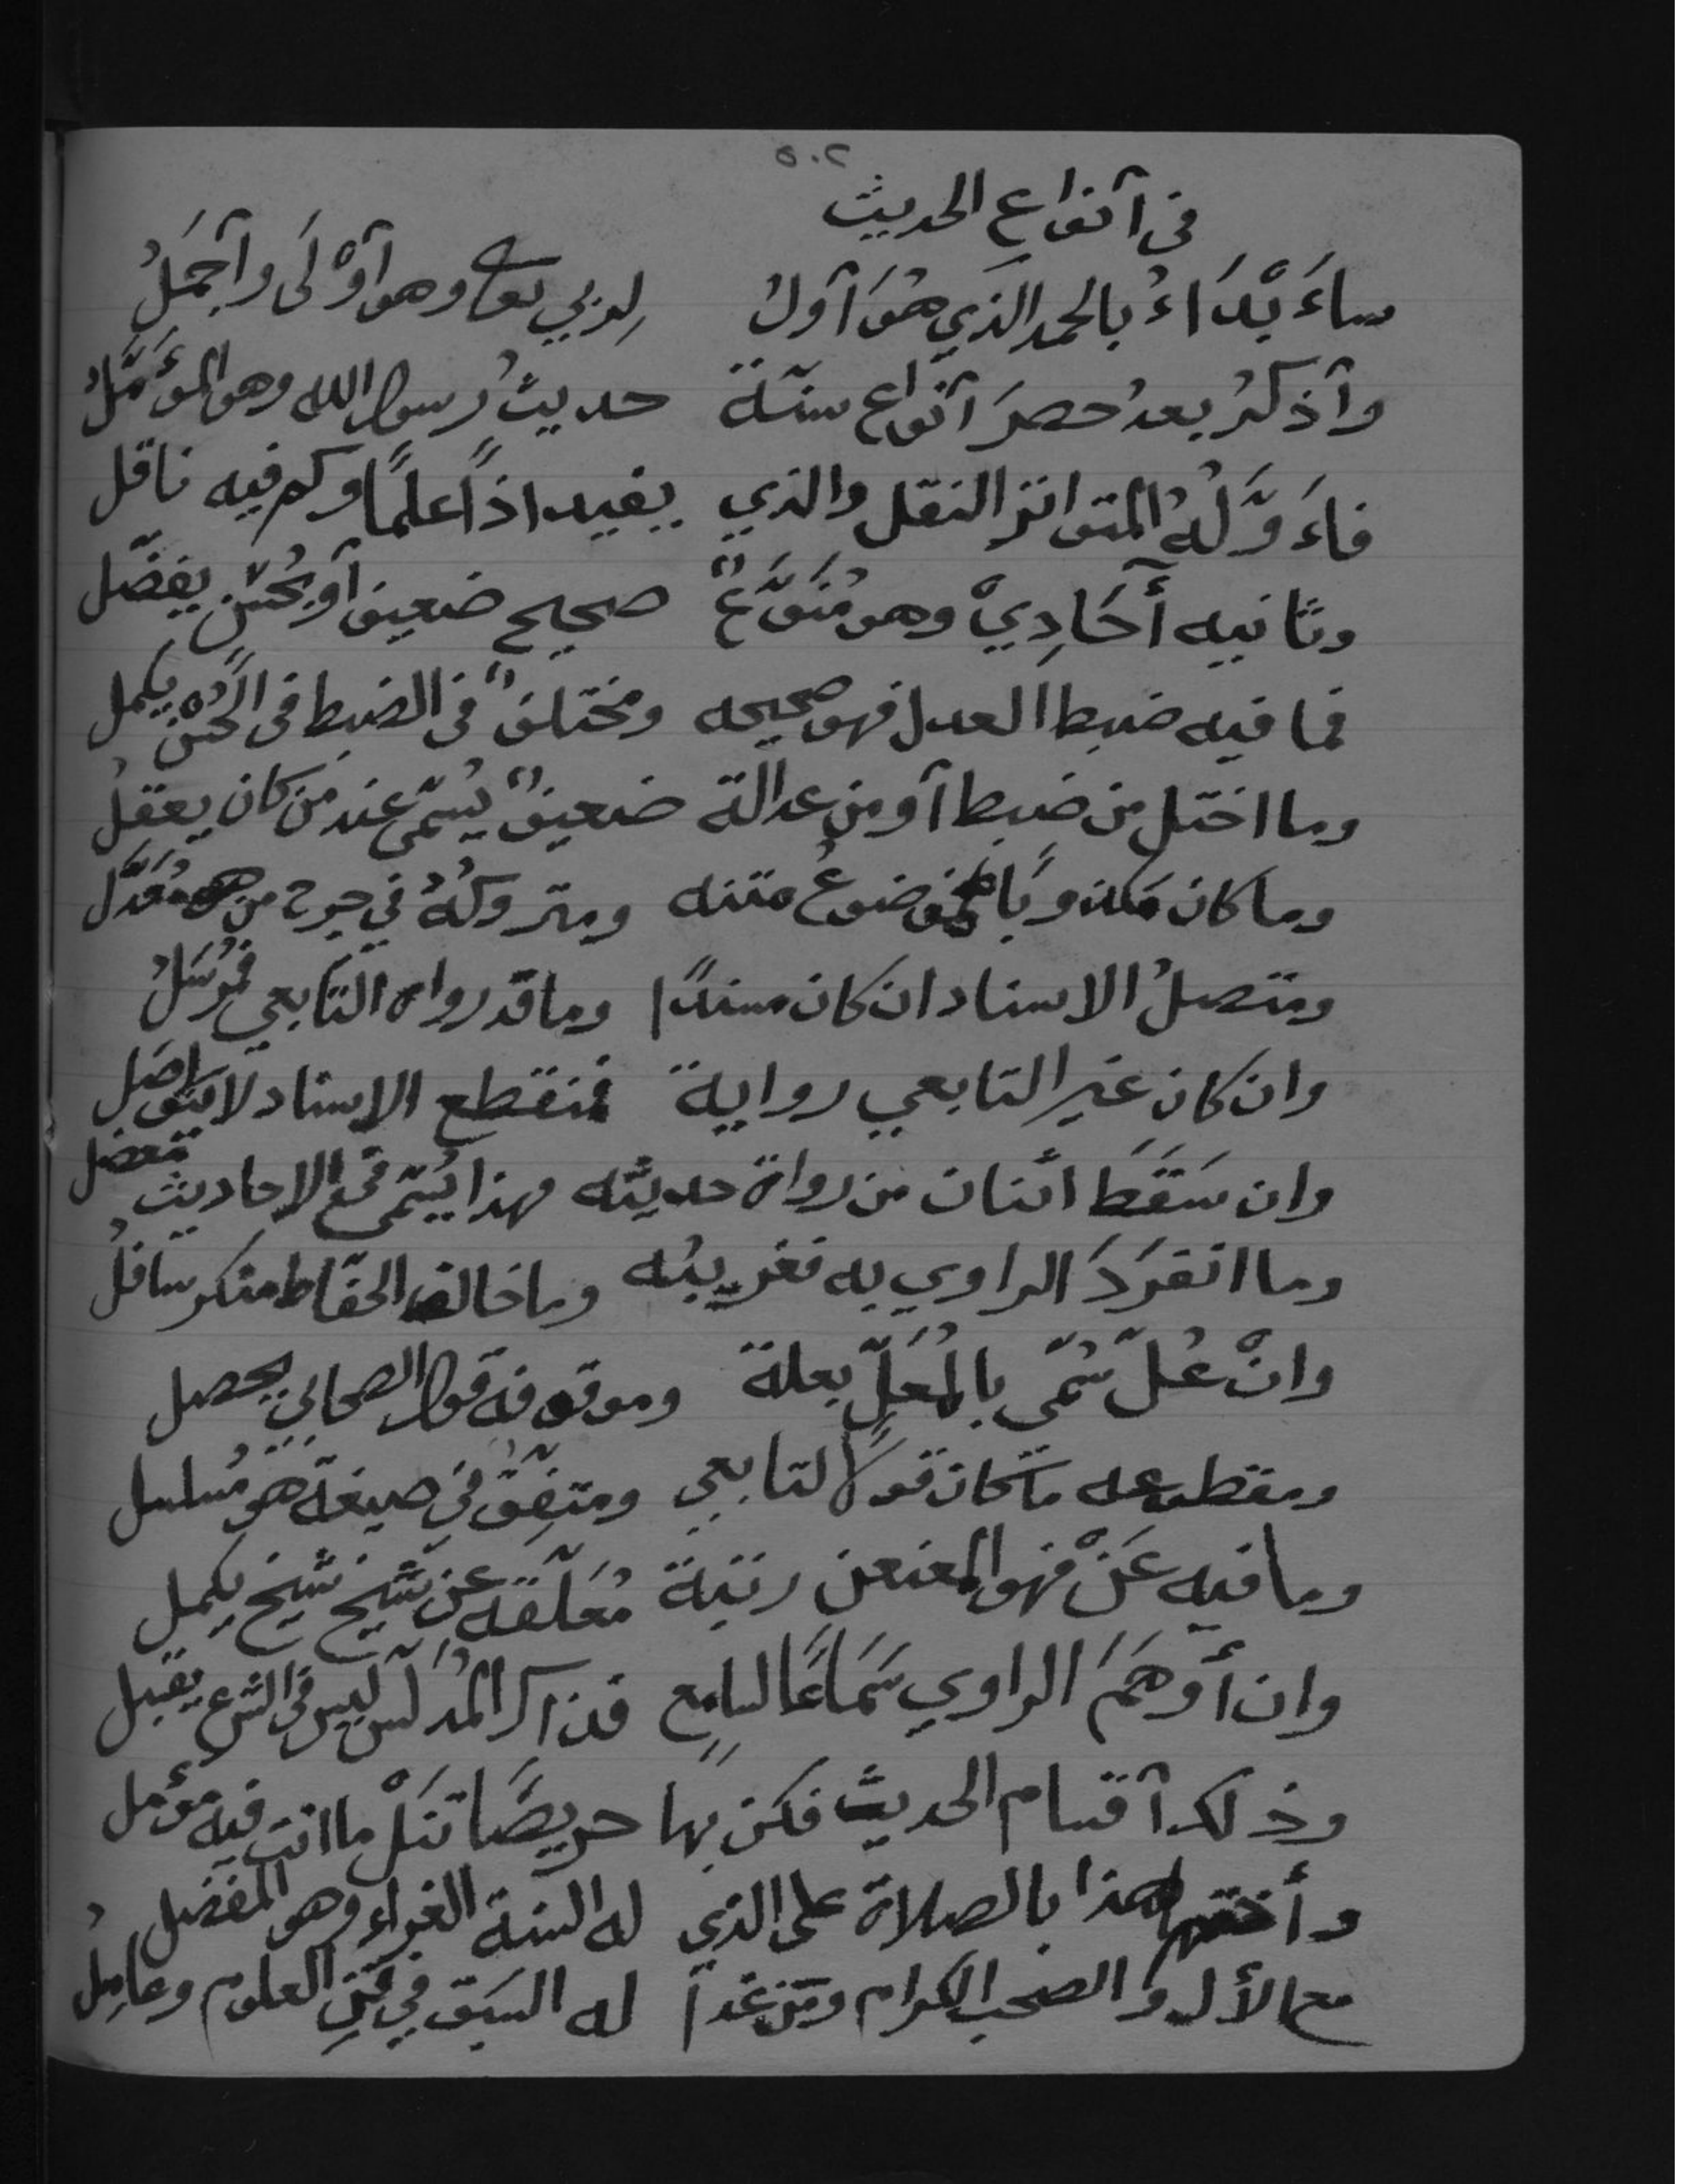 ٥٠٢
في أنواع الحديث
سأبدأ بالحمد الذي هُوَ أولُ لربي تعا وهو أوْلَى وأجمَلُ
وأذكرُ بعدُ حصرَ أنواع سنّة حديثُ رسول الله وهو المؤَمَّلُ
فأَوَّلُهُ المتواتر النقل والذي يفيد اذاً علماً وكم فيه ناقل
وثانيه أَحَادِيْ وهو مُنَوَّعٌ صحيح ضعيف أو بحُسْن يفضّل
فما فيه ضبط العدل فهو صحيحه ومختلفٌ في الضبط في الحُسْن يكمل
وما اختل من ضبط أو من عدالة ضعيفٌ يُسمّى عند من كان يعقلُ
وما كان مكذوبًا فموضوعُ متنه ومتروكُهُ في جرح من هو مُعَدَّل
ومتصلُ الاسناد ان كان مسندًا وما قد رواه التّابعي فمُرْسَلُ
وان كان غير التابعي رواية فمنقطع الاسناد لا يتواصَل
وان سَقَطَ اثنان من رواة حديثه فهذا يُسمّى في الاحاديث معضل
وما انفَرَدَ الراوي به فغريبُه وما خالف الحفّاظ منكر سافلُ
وانْ عُلّ سُمّى بالمُعَلِّ بعلة وموقوفه قول الصحابي يحصل
ومقطوعه ما كان قولاً لتابعي ومتفِقٌ في صيغة هو مُسلسل
وما فيه عَنْ فهو المعنعن رتبة مُعَلّقه عن شيخ شيخ يكمل
وان أَوهَمَ الراوي سَمَاعًا لسامِعٍ فذاك المُدلّس ليس في الشرع يقبل
وذلك أقسام الحديث فكن بها حريصًا تنَلْ ما انت فيه مؤمل
وأختم هذا بالصلاة على الذي له السنة الغراء وهو المفضل
مع الأل والصحب الكرام ومن غدا له السبق في فنِّ العلوم وعامِلُ